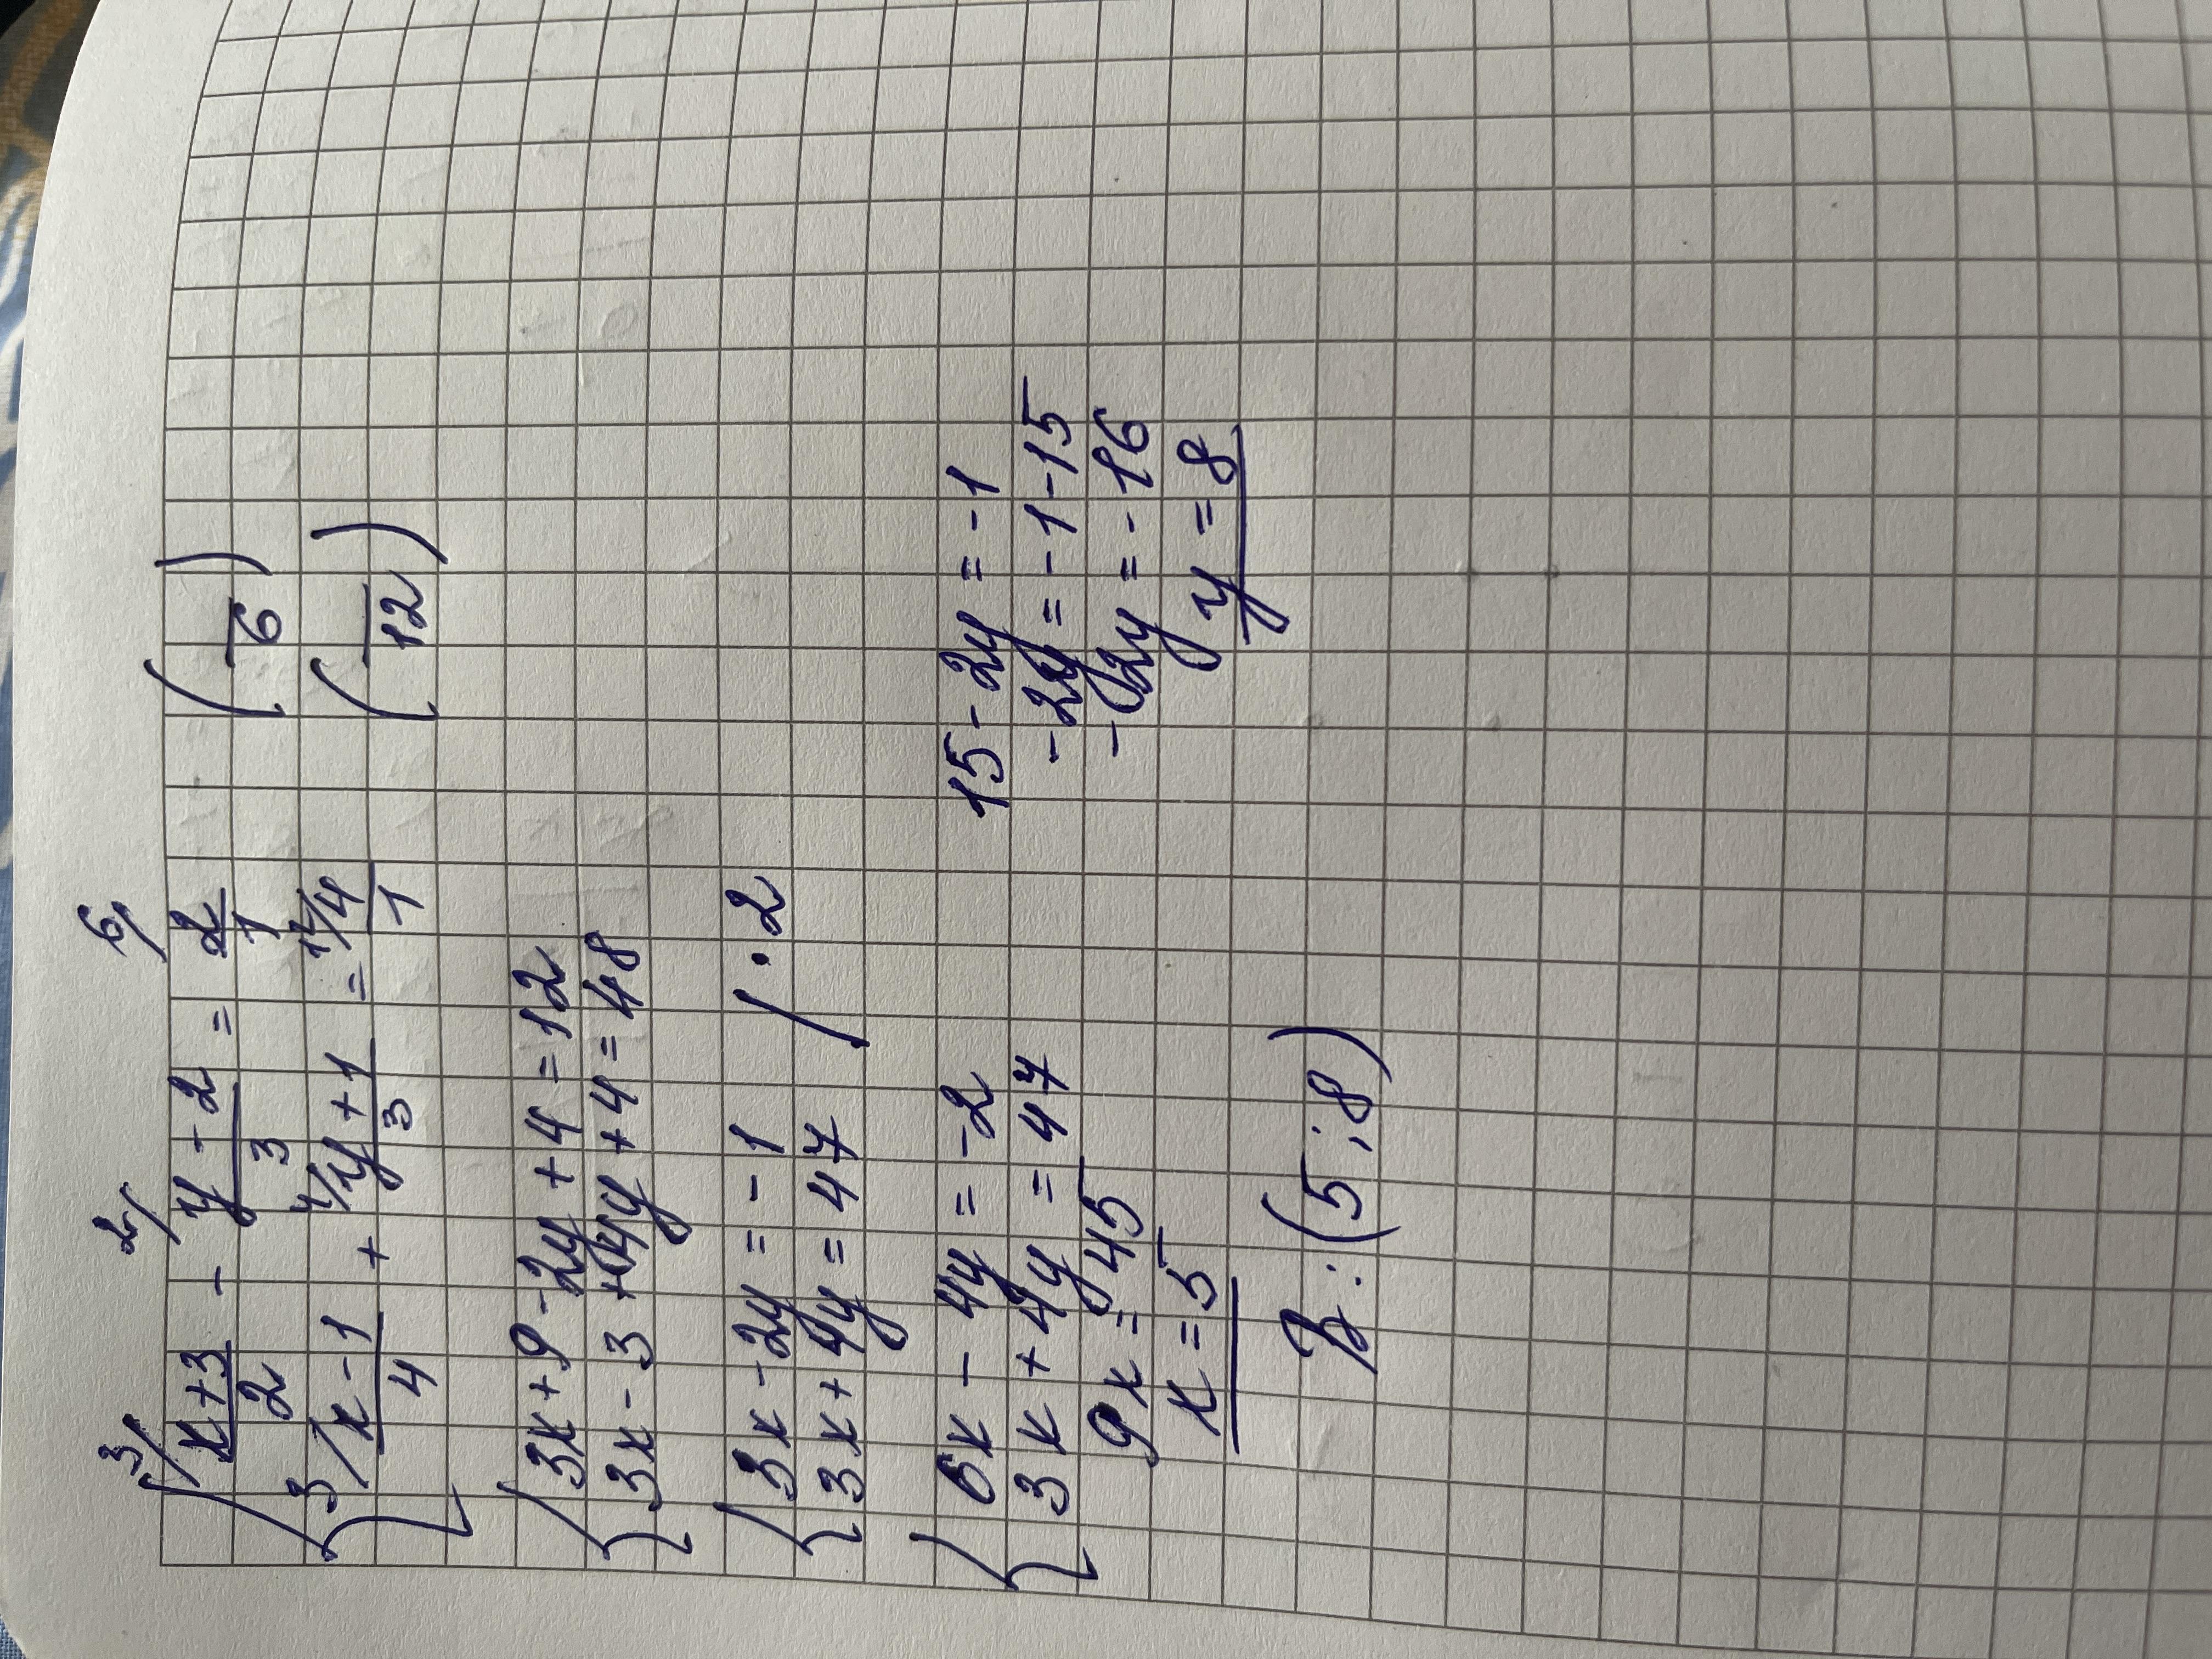 3/ x+3/2 - 2/ y-2/3 = 6/ 2/1 ( /6 )
3/ x-1/4 + 4/ y+1/3 = 12/ 4/1 ( /12 )
{ 3x+9-2y+4=12
3x-3+4y+4=48
{ 3x-2y=-1 / ·2
3x+4y=47
{ 6x-4y=-2
3x+4y=47
9x=45
x=5
15-2y=-1
-2y=-1-15
-2y=-16
y=8
В: (5;8)